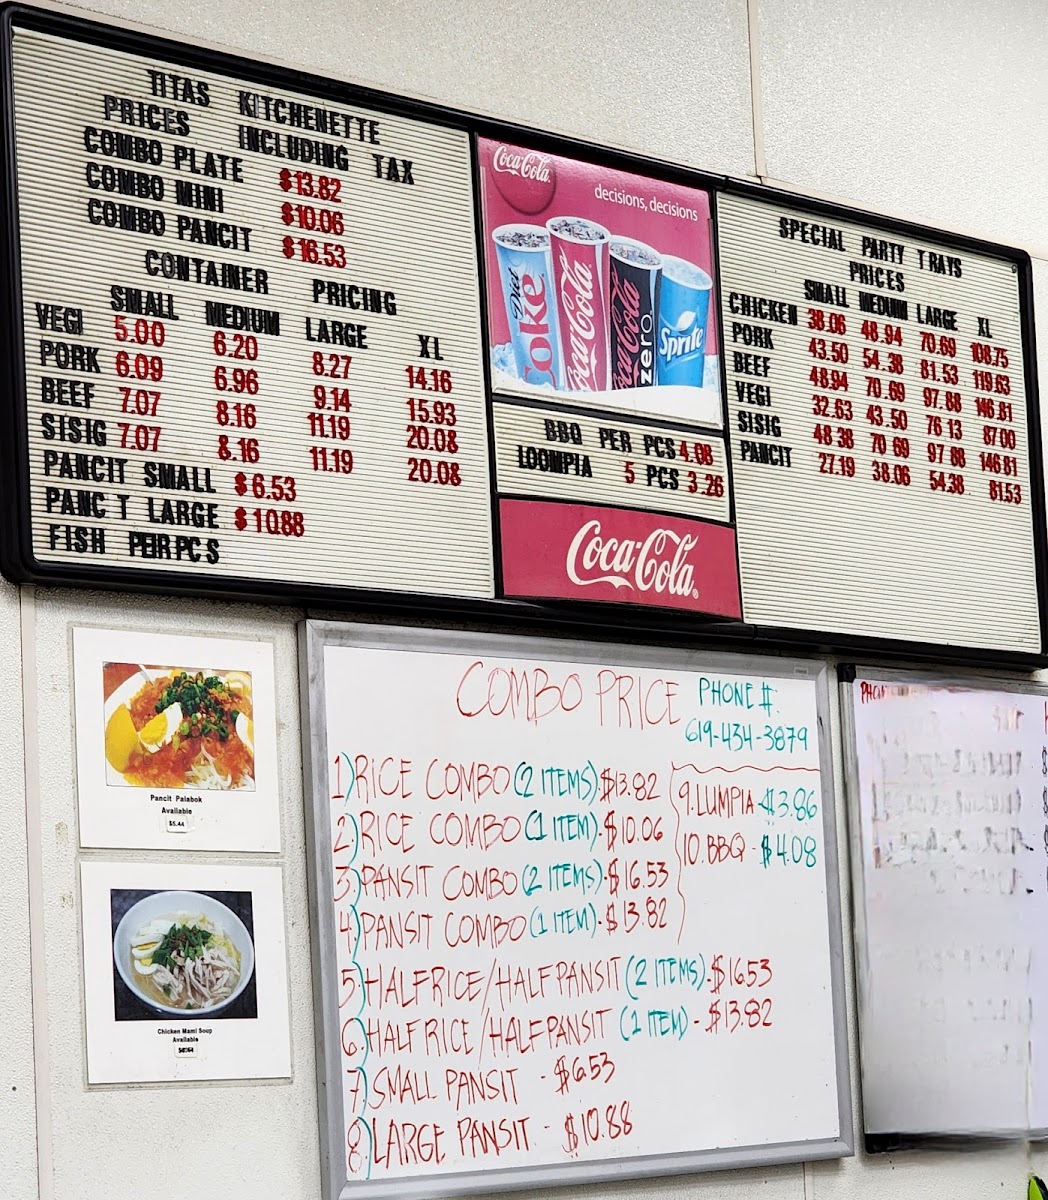 TITAS KITCHENETTE
PRICES INCLUDING TAX
COMBO PLATE $13.82
COMBO MINI $10.06
COMBO PANCIT $16.53
CONTAINER PRICING
SMALL MEDIUM LARGE XL
VEGI 5.00 6.20 8.27 14.16
PORK 6.09 6.96 9.14 15.93
BEEF 7.07 8.16 11.19 20.08
SISIG 7.07 8.16 11.19 20.08
PANCIT SMALL $6.53
PANC T LARGE $10.88
FISH PEIR PC S
Coca-Cola
decisions, decisions
Diet Coke
Coca-Cola
Coca-Cola zero
Sprite
BBQ PER PCS 4.08
LOOMPIA 5 PCS 3.26
Coca-Cola
SPECIAL PARTY TRAYS
PRICES
SMALL MEDIUM LARGE XL
CHICKEN 38.06 48.94 70.69 108.75
PORK 43.50 54.38 81.53 119.63
BEEF 48.94 70.69 97.88 146.81
VEGI 32.63 43.50 76 13 87.00
SISIG 48 38 70 69 97 88 146.81
PANCIT 27.19 38.06 54.38 81.53
Pancit Palabok
Available
$5.44
Chicken Mami Soup
Available
COMBO PRICE
PHONE #:
619-434-3879
1) RICE COMBO (2 ITEMS)-$13.82
2) RICE COMBO (1 ITEM)-$10.06
3) PANSIT COMBO (2 ITEMS)-$16.53
4) PANSIT COMBO (1 ITEM)-$13.82
5) HALFRICE/HALFPANSIT (2 ITEMS)-$16.53
6) HALFRICE/HALFPANSIT (1 ITEM) - $13.82
7) SMALL PANSIT - $6.53
8) LARGE PANSIT - $10.88
9. LUMPIA - $3.86
10. BBQ - $4.08